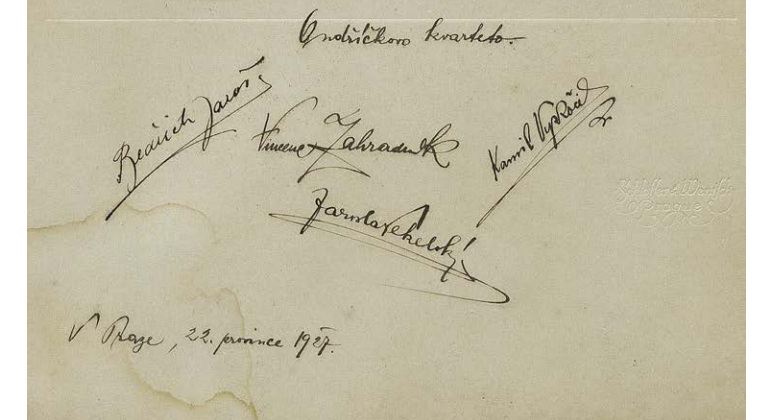 Ondříčkovo kvarteto.
Bedřich Jaroš.
Vincenc Zahradník
Kamil Vyskočil
Jaroslav Pekelský
V Praze, 22. prosince 1927.
Prague